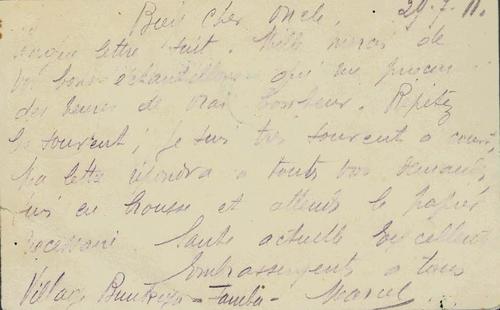 Bien cher Oncle, 29.7.11.
lettre suit. Mille mercis de
vos bons échantillons qui me
des heures de vrai bonheur. Répétez
les souvent; je suis très souvent à court,
Ma lettre répondra à toutes vos demandes
suis en brousse et attends le papier
nécessaire Santé actuelle Excellente
Embrassements à tous
Village - Marcel